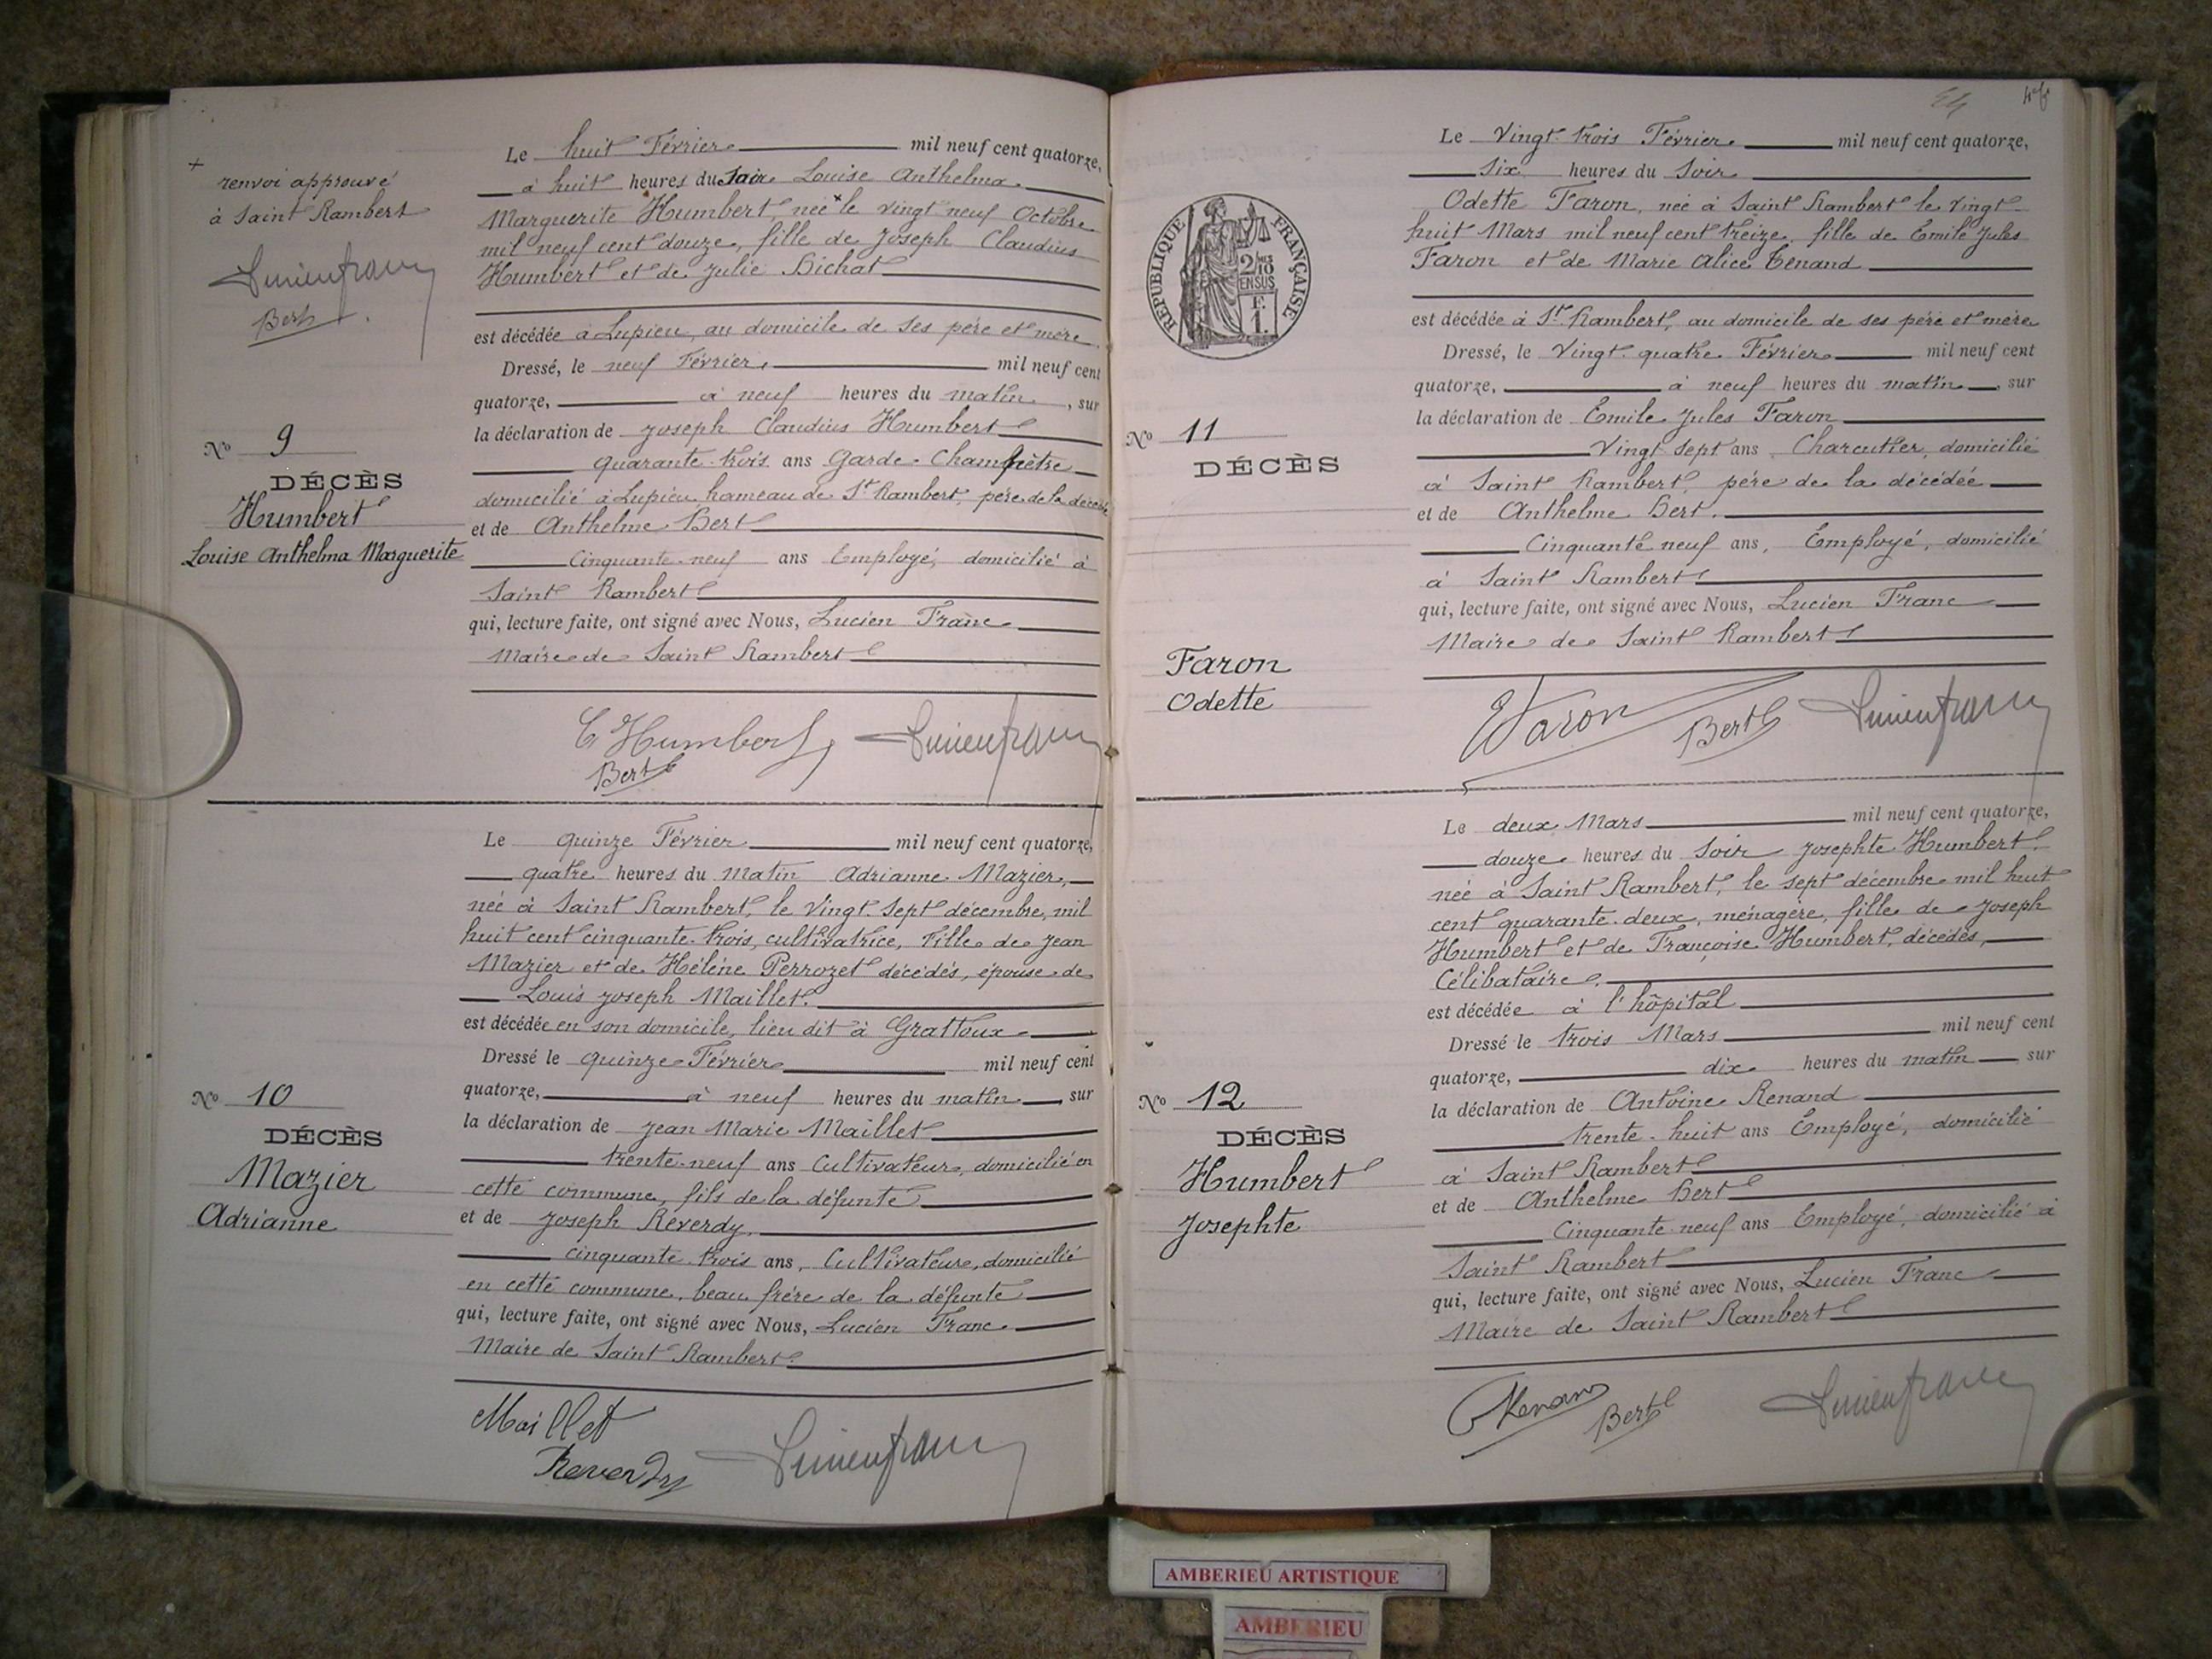 +
renvoi approuvé
à Saint Rambert
Lucien franc
Bert
Le huit Février mil neuf cent quatorze,
à huit heures du Soir Louise Anthelma
Marguerite Humbert, née + le vingt neuf Octobre
mil neuf cent douze, fille de Joseph Claudius
Humbert et de Julie Bichat
est décédée à Lupieu, au domicile de ses père et mère.
Dressé, le neuf Février, mil neuf cent
quatorze, à neuf heures du matin, sur
la déclaration de Joseph Claudius Humbert
quarante trois ans Garde Champêtre
domicilié à Lupieu hameau de St Rambert, père de la décédée
et de Anthelme Bert
Cinquante-neuf ans Employé, domicilié à
Saint Rambert
qui, lecture faite, ont signé avec Nous, Lucien Franc
Maire de Saint Rambert
No 9
DÉCÈS
Humbert
Louise Anthelma Marguerite
C Humbert
Bert
Lucien franc
Le quinze Février mil neuf cent quatorze,
quatre heures du matin Adrianne Mazier,
née à Saint Rambert, le Vingt Sept décembre, mil
huit cent cinquante-trois, cultivatrice, fille de Jean
Mazier et de Hélène Perrozet décédés, épouse de
Louis Joseph Maillet.
est décédée en son domicile, lieu dit à Grattoux
Dressé le quinze Février mil neuf cent
quatorze, à neuf heures du matin, sur
la déclaration de Jean Marie Maillet
trente-neuf ans Cultivateur, domicilié en
cette commune, fils de la défunte
et de Joseph Reverdy.
cinquante trois ans, Cultivateur, domicilié
en cette commune, beau frère de la défunte
qui, lecture faite, ont signé avec Nous, Lucien Franc
Maire de Saint Rambert.
No 10
DÉCÈS
Mazier
Adrianne
Maillet
Reverdy
Lucien franc
RÉPUBLIQUE FRANÇAISE
2/10
EN SUS
F.
1.
Le Vingt trois Février mil neuf cent quatorze,
Six heures du Soir
Odette Faron, née à Saint Rambert le Vingt
huit Mars mil neuf cent treize, fille de Emile Jules
Faron et de Marie Alice Tenand
est décédée à St Rambert, au domicile de ses père et mère
Dressé, le Vingt quatre Février mil neuf cent
quatorze, à neuf heures du matin, sur
la déclaration de Emile Jules Faron
Vingt Sept ans, Charcutier, domicilié
à Saint Rambert, père de la décédée
et de Anthelme Bert.
Cinquante neuf ans, Employé, domicilié
à Saint Rambert
qui, lecture faite, ont signé avec Nous, Lucien Franc
Maire de Saint Rambert
No 11
DÉCÈS
Faron
Odette
Faron
Bert
Lucien franc
Le deux Mars mil neuf cent quatorze,
douze heures du Soir Josephte Humbert.
née à Saint Rambert, le sept décembre mil huit
cent quarante deux, ménagère, fille de Joseph
Humbert et de Françoise Humbert, décédés,
Célibataire.
est décédée à l'hôpital
Dressé le trois Mars mil neuf cent
quatorze, dix heures du matin sur
la déclaration de Antoine Renand
trente-huit ans Employé, domicilié
à Saint Rambert
et de Anthelme Bert
Cinquante neuf ans Employé, domicilié à
Saint Rambert
qui, lecture faite, ont signé avec Nous, Lucien Franc
Maire de Saint Rambert
No 12
DÉCÈS
Humbert
Josephte
Renand
Bert
Lucien franc
AMBERIEU ARTISTIQUE
AMBERIEU